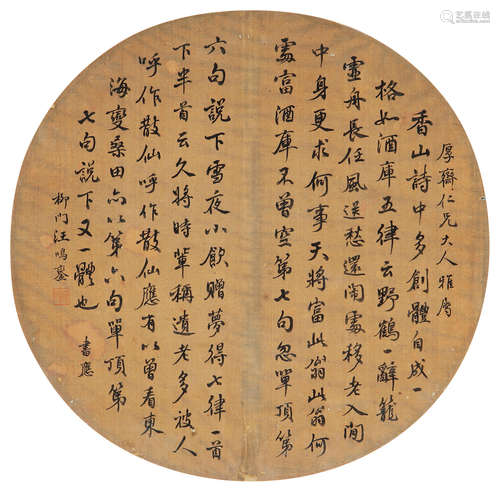 厚齋仁兄大人雅屬
香山詩中多創體自成一
格如酒庫五律云野鶴一辭籠
虛舟長任風送愁還鬧處移老入閒
中身更求何事天將富此翁此翁何
處富酒庫不曾空第七句忽單頂第
六句說下雪夜小飲贈夢得七律一首
下半首云久將時輩稱遺老多被人
呼作散仙呼作散仙應有以曾看東
海變桑田亦以第六句單頂第
七句說下又一體也 書應
柳門汪鳴鑾
艺狐在线